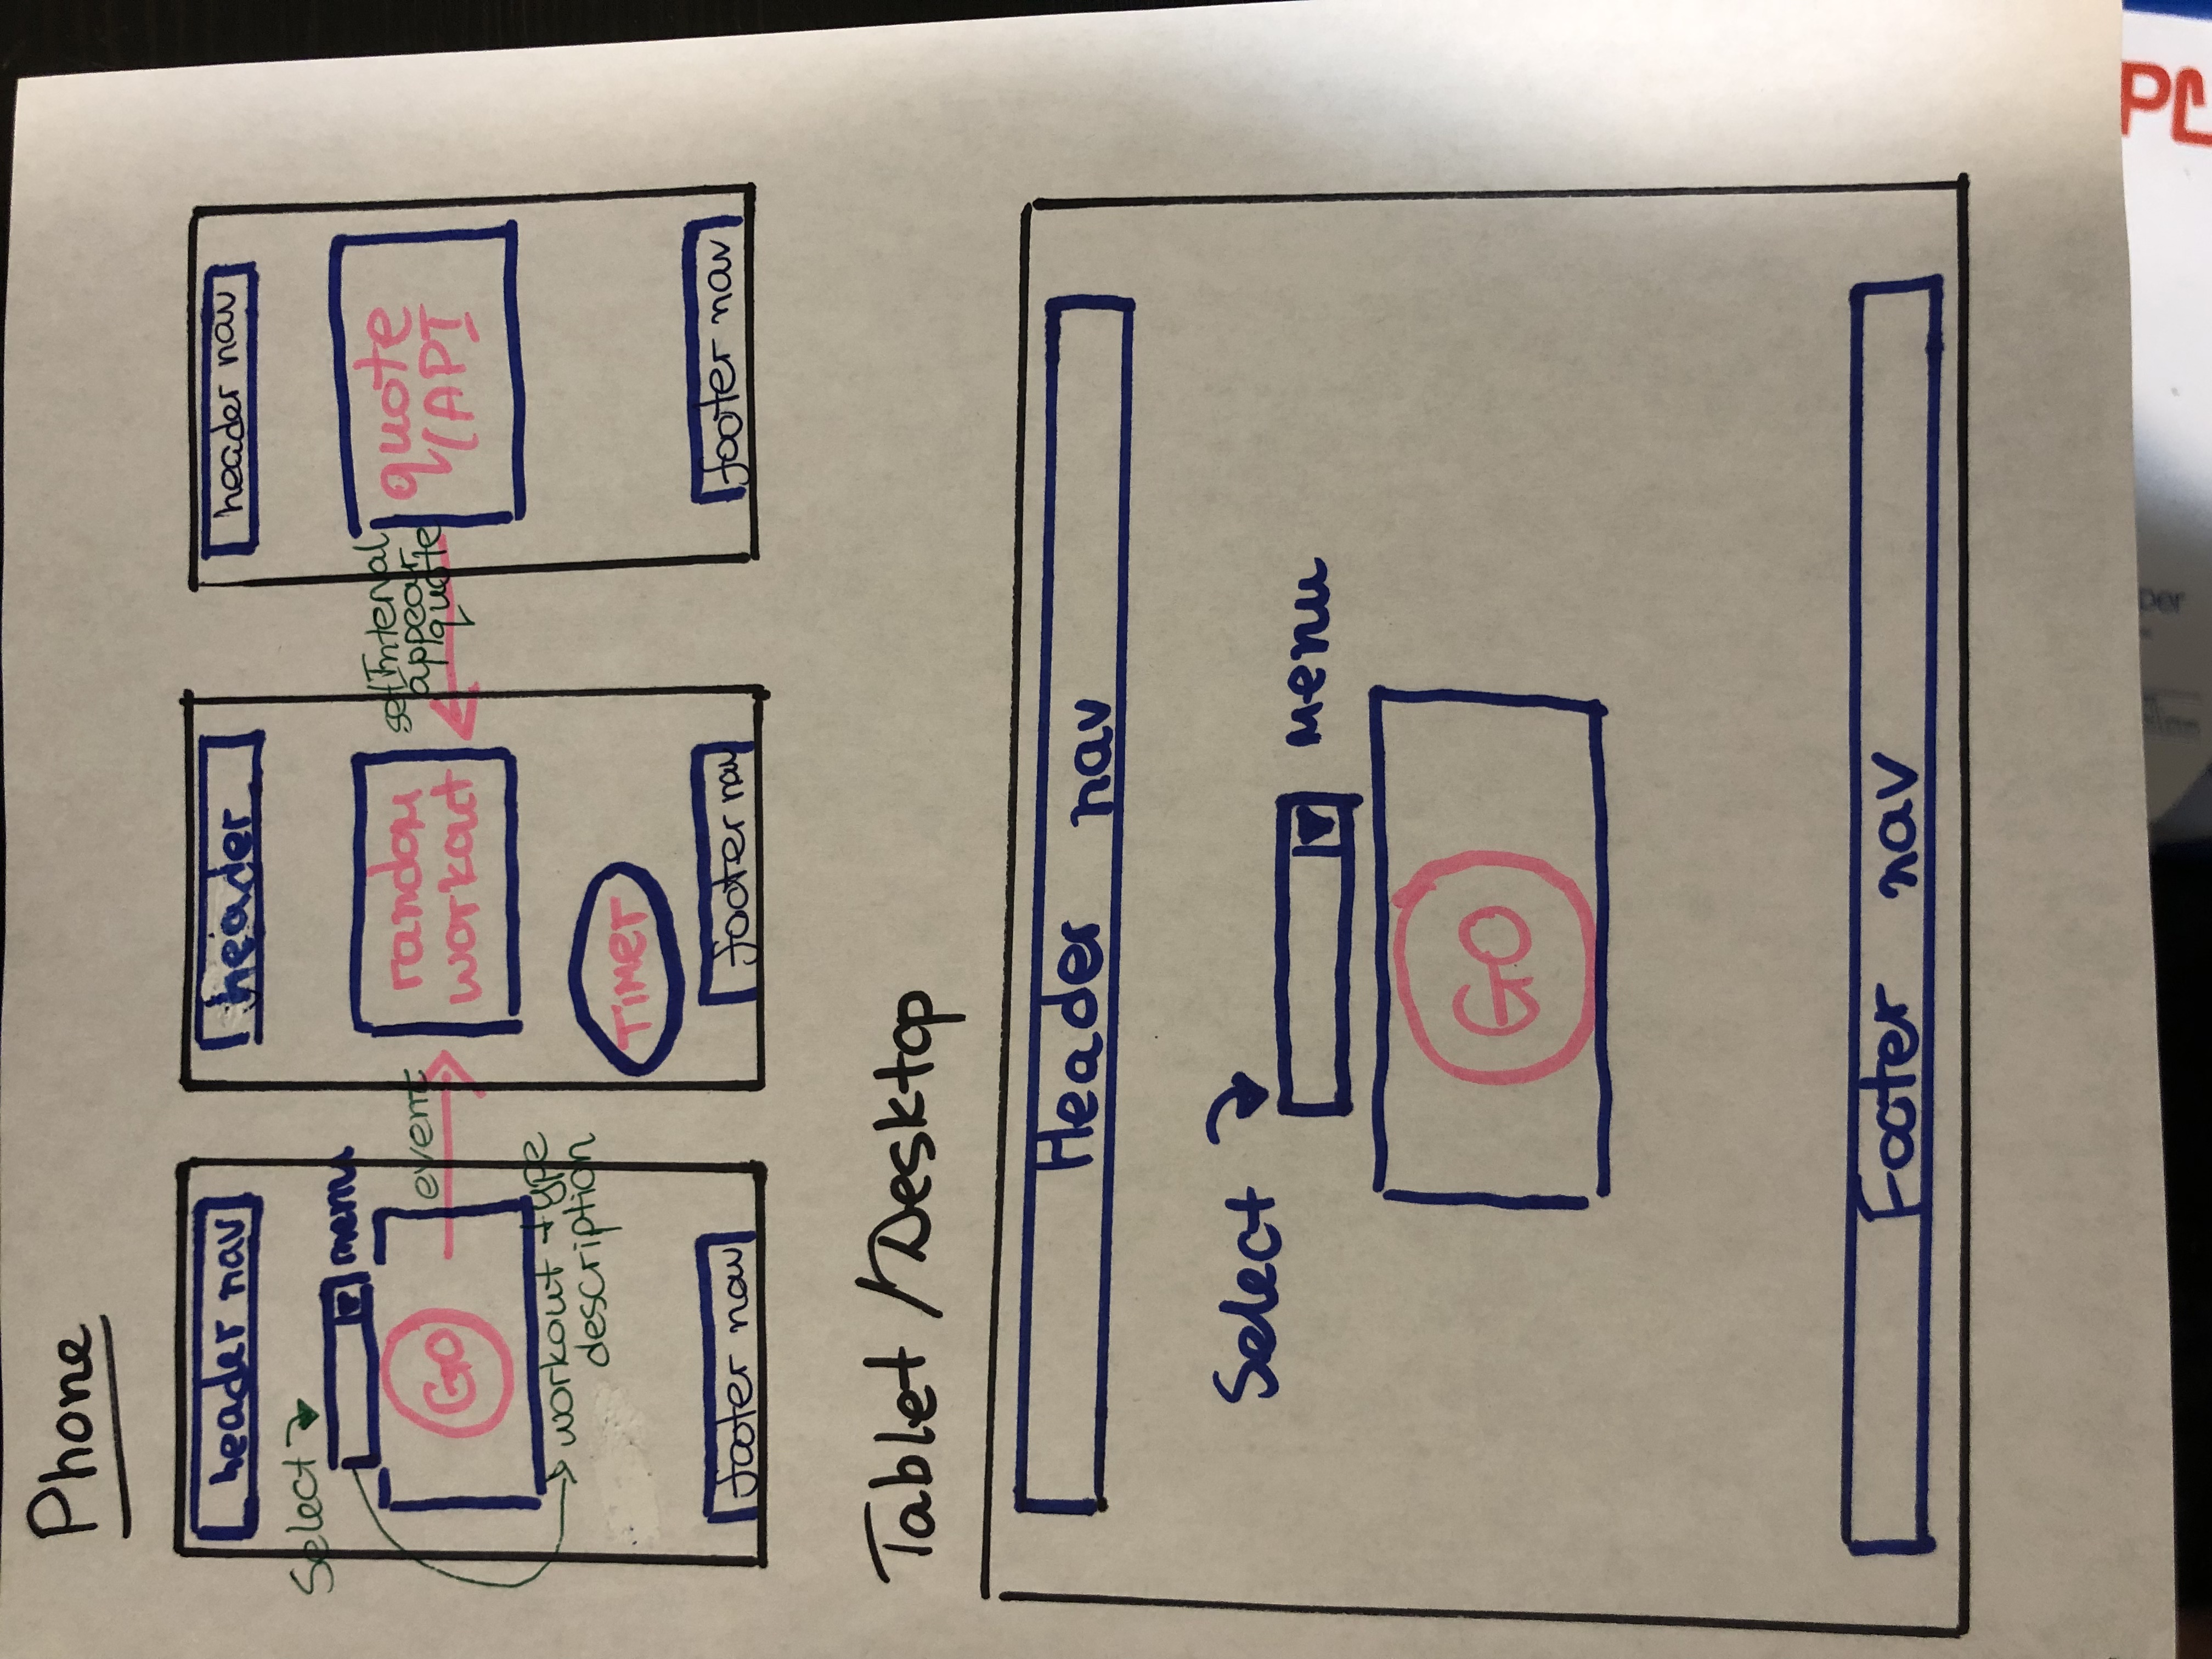 Phone
header nav
Select
menu
GO
event
workout type
description
footer nav
header
random
workout
TIMER
footer nav
setInterval
appear
quote
header nav
quote
(API
footer nav
Tablet/Desktop
Header nav
Select
Menu
GO
Footer nav